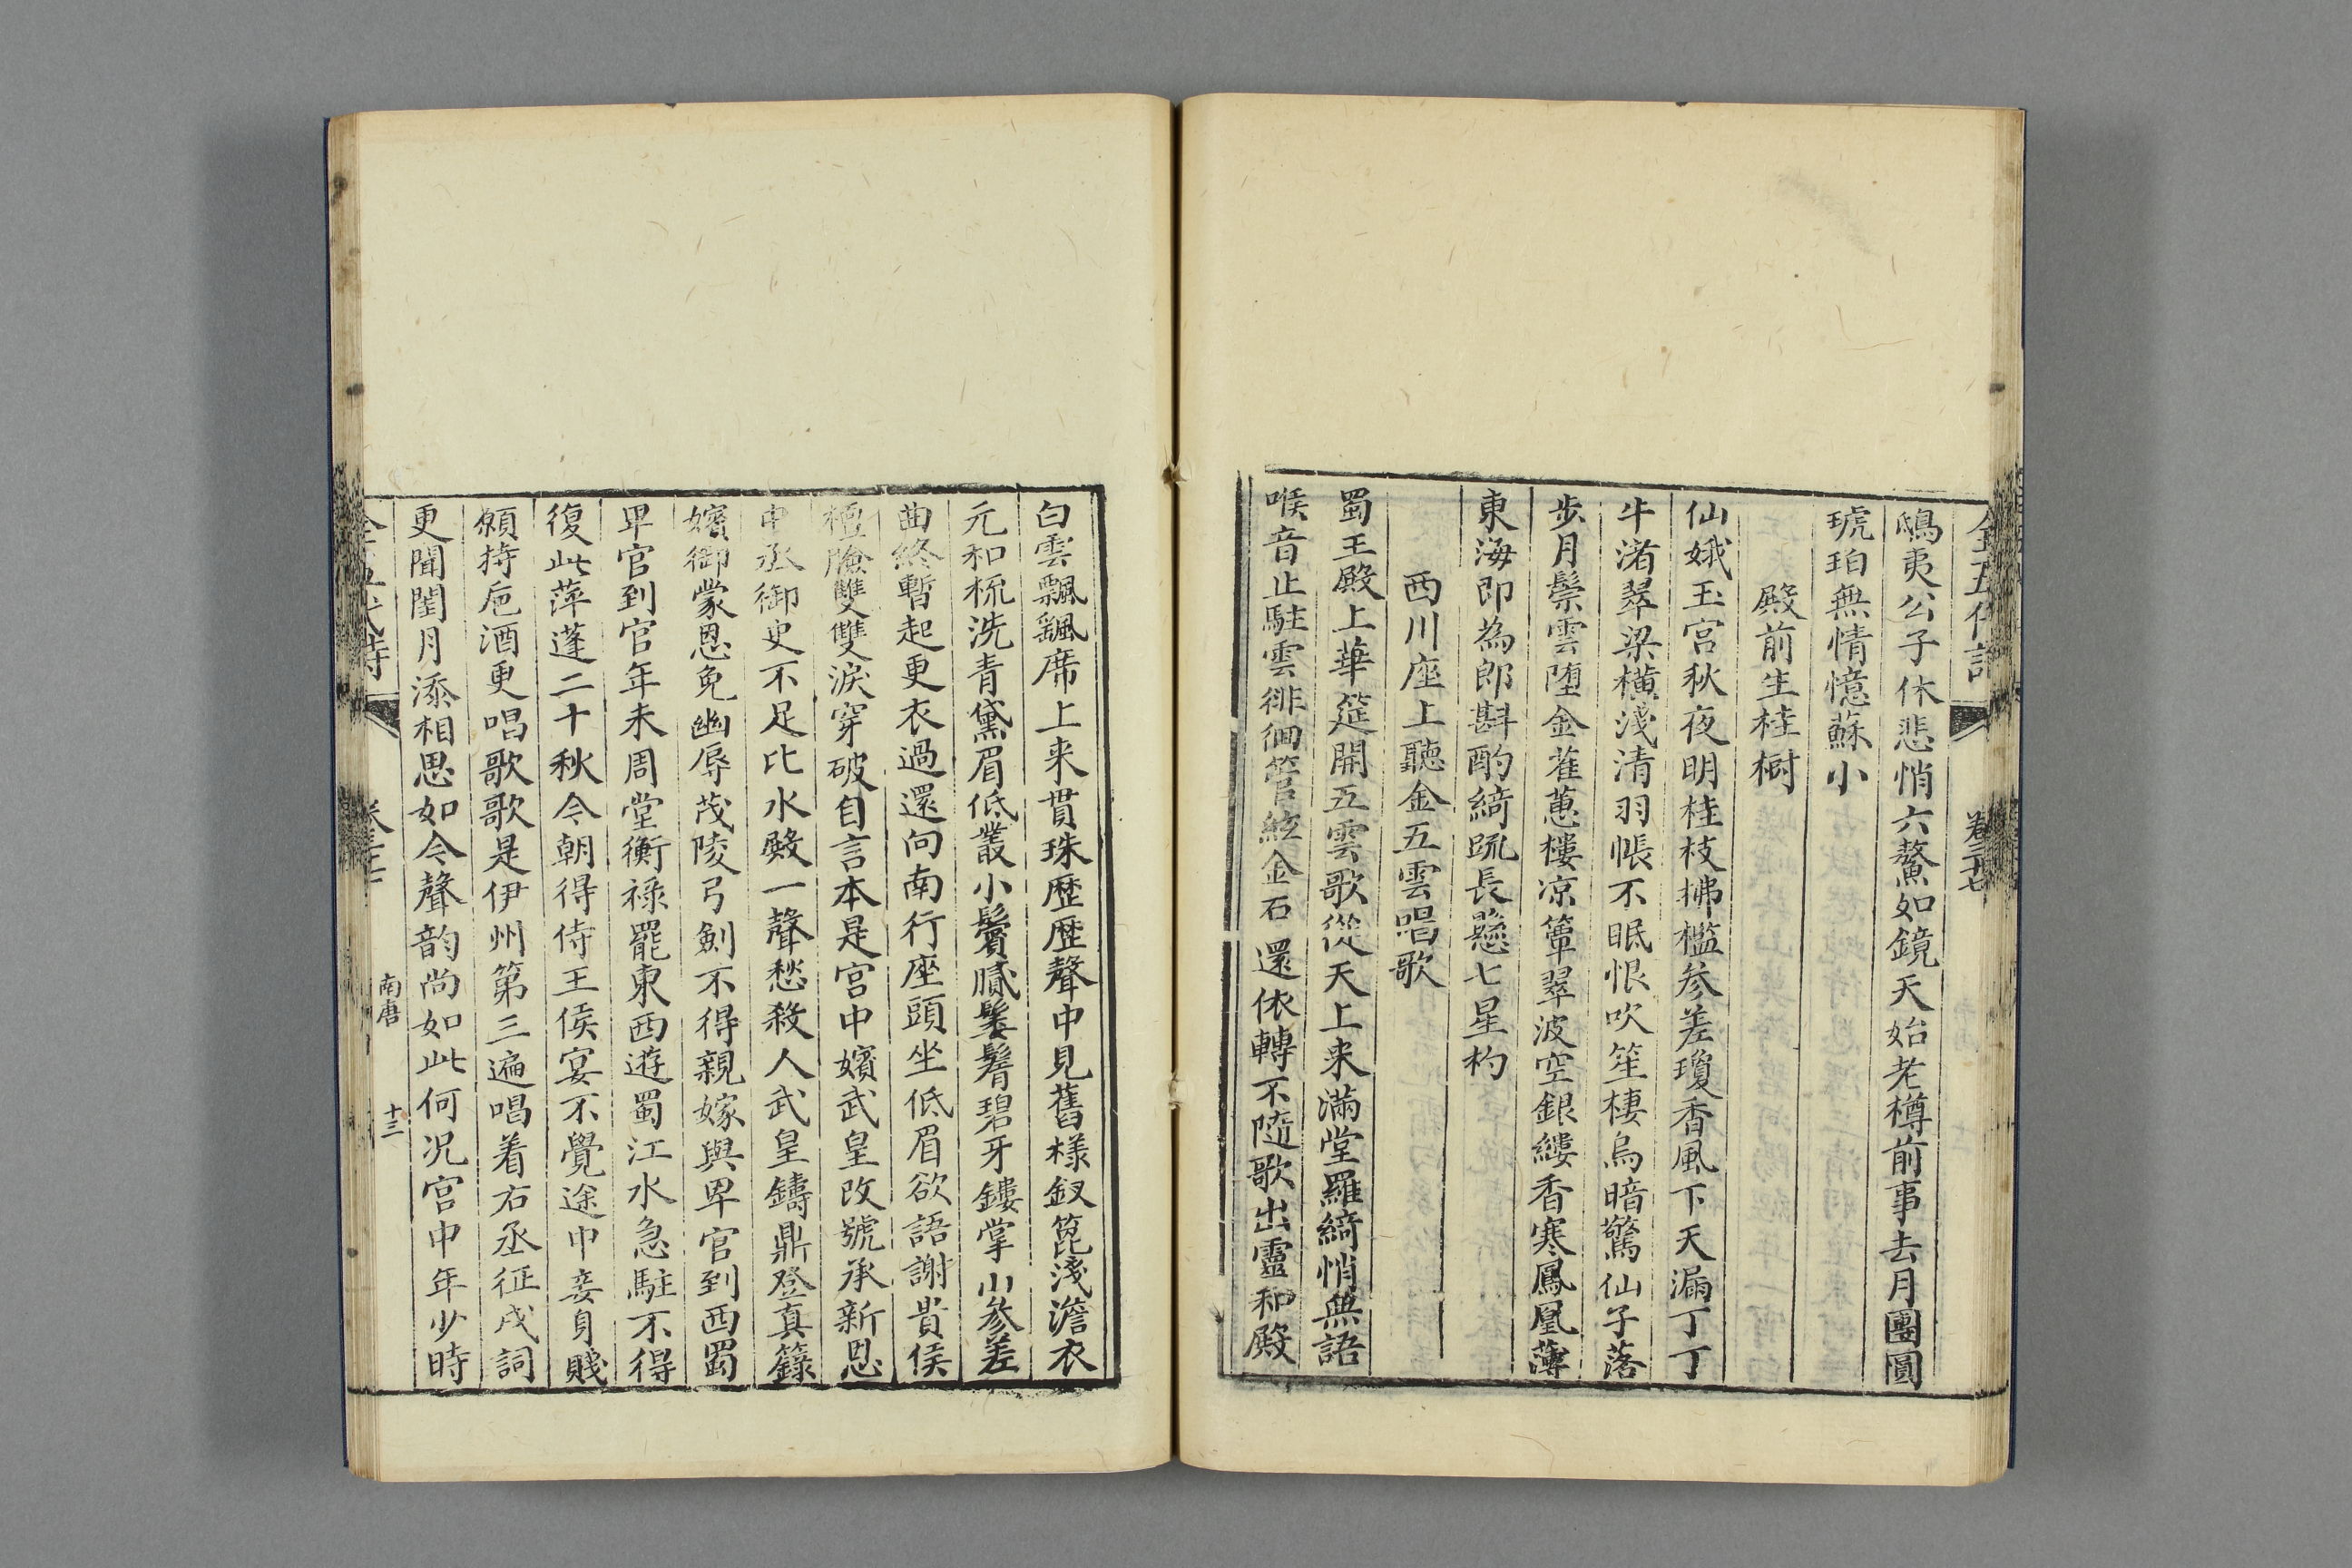 全五代詩 卷三十七
鴟夷公子休悲悄六鰲如鏡天始老樽前事去月團圓
琥珀無情憶蘇小
殿前生桂樹
仙娥玉宮秋夜明桂枝拂檻参差瓊香風下天漏丁丁
牛渚翠梁橫淺清羽帳不眠恨吹笙棲烏暗驚仙子落
步月鬃雲堕金雀蕙樓凉簟翠波空銀縷香寒鳳凰薄
東海即為郎斟酌綺䟽長懸七星杓
西川座上聽金五雲唱歌
蜀王殿上華筵開五雲歌從天上来滿堂羅綺悄無語
喉音止駐雲徘徊管絃金石還依轉不隨歌出靈和殿
白雲飄飖席上来貫珠歴歴聲中見舊様釵篦淺澹衣
元和梳洗青黛眉低叢小鬢膩鬟鬌碧牙鏤掌山参差
曲終暫起更衣過還向南行座頭坐低眉欲語謝貴侯
檀臉雙雙淚穿破自言本是宮中嬪武皇改號承新恩
中丞御史不足比水殿一聲愁殺人武皇鑄鼎登真籙
嬪御蒙恩免幽辱茂陵弓劍不得親嫁與卑官到西蜀
卑官到官年未周堂衡禄罷東西遊蜀江水急駐不得
復此萍蓬二十秋今朝得侍王侯宴不覺途中妾身賤
願持巵酒更唱歌歌是伊州第三遍唱着右丞征戍詞
更聞閨月添相思如今聲韵尚如此何况宮中年少時
南唐 十三